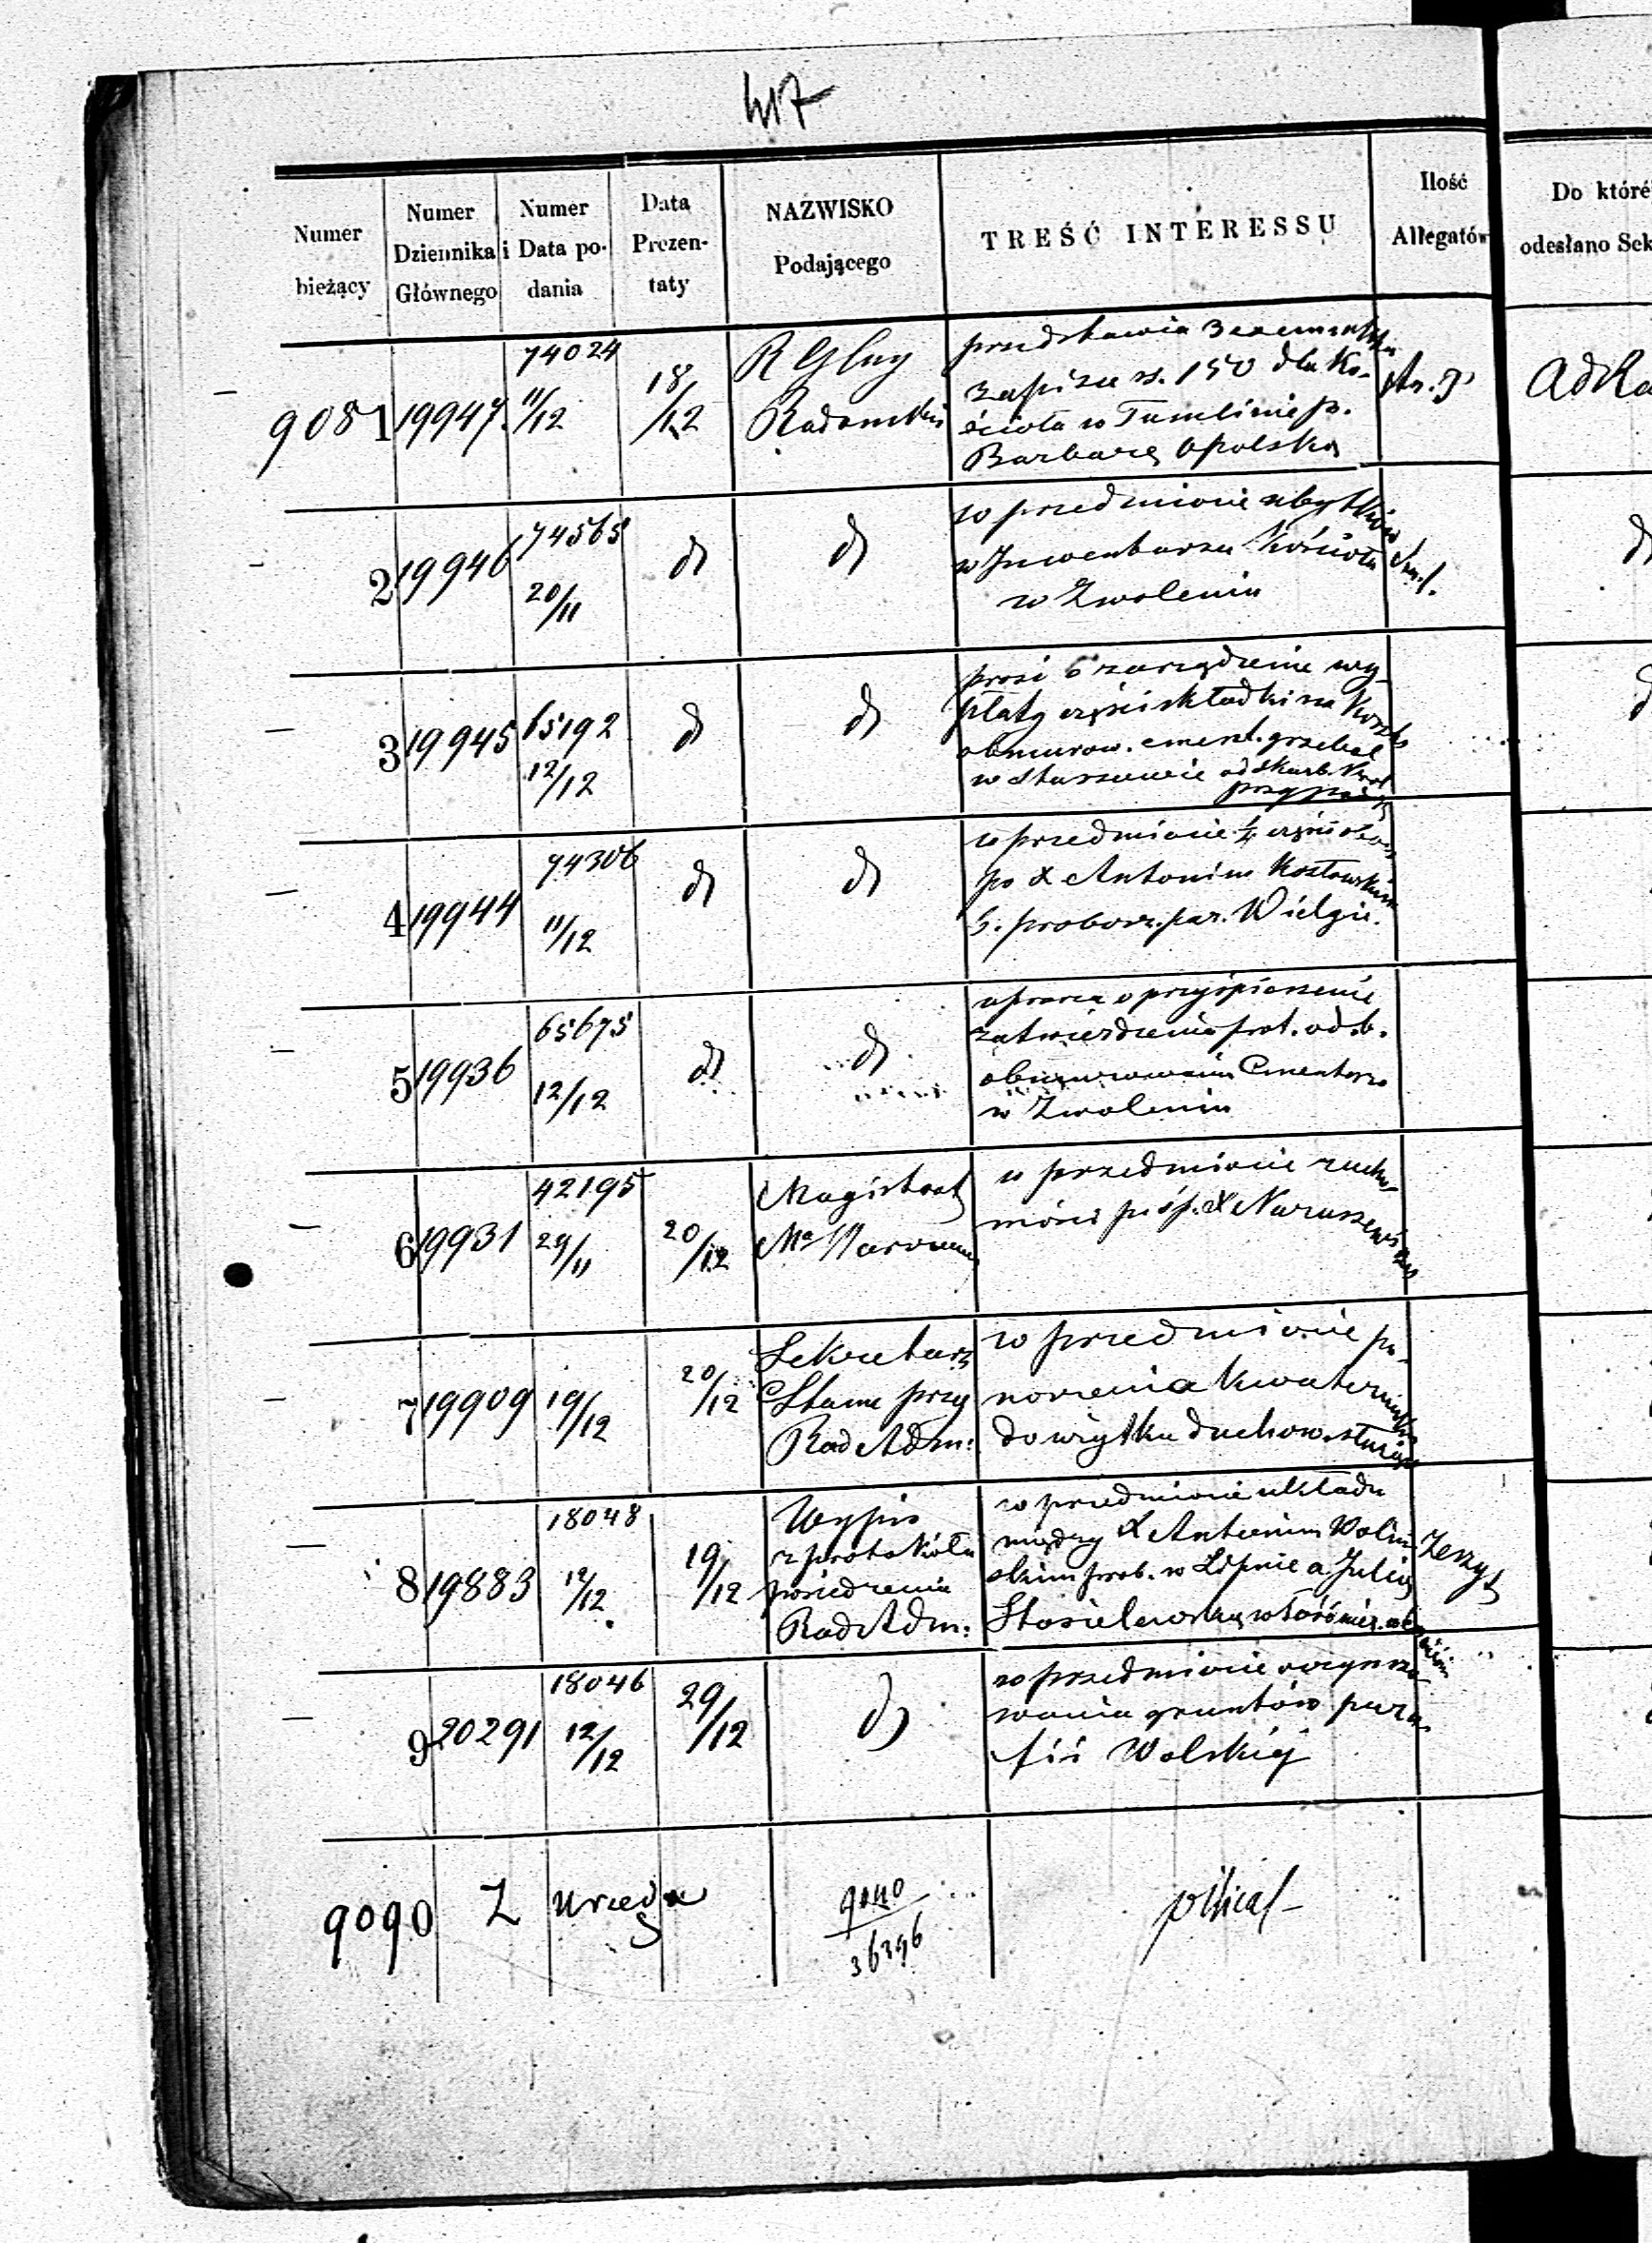 417
Numer bieżący | Numer Dziennika Głównego | Numer i Data podania | Data Prezentaty | NAZWISKO Podającego | TREŚĆ INTERESSU | Ilość Allegatów | Do które odesłano Sek
9081 19947 74024 11/12 18/12 R Gbny Radomski
przedstawia 3
zapisu rs. 150 dla Ko-
ścioła w Tumlinie p.
Barbarę Opolską
2 19946 74565 20/11 d d
w przedmiocie ubytków
w Inwentarzu Kościoła
w Zwoleniu
3 19945 65192 12/12 d d
prosi o zarządzenie wy-
płaty części składki na Koszta
obmurow. cment. grzebal
w od Skarb.
4 19944 74306 11/12 d d
w przedmiocie części
po X Antonim Kozłowskim
b. probosz. par. Wielgie.
5 19936 65675 12/12 d d
uprasza o przyśpieszenie
zatwierdzenia prot. od. b.
obmurowania Cmentarza
w Zwoleniu
6 19931 42195 29/11 20/12 Magistrat Ma Warszawy
w przedmiocie rucho-
mości po śp. X Naruszewi
7 19909 19/12 20/12 Sekretarz Stanu przy Rad Adm:
w przedmiocie po-
noszenia
do użytku duchow. służąc
8 19883 18048 12/12 19/12 Wypis z protokółu posiedzenia Rad Adm:
w przedmiocie układu
między X Antonim Woliń-
skim prob. w Lipnie a Julią
Zeszyt
9 20291 18046 12/12 29/12 d
w przedmiocie oczynszo-
wania gruntów para-
fii Wolskiéj
9090 Z Urzędu